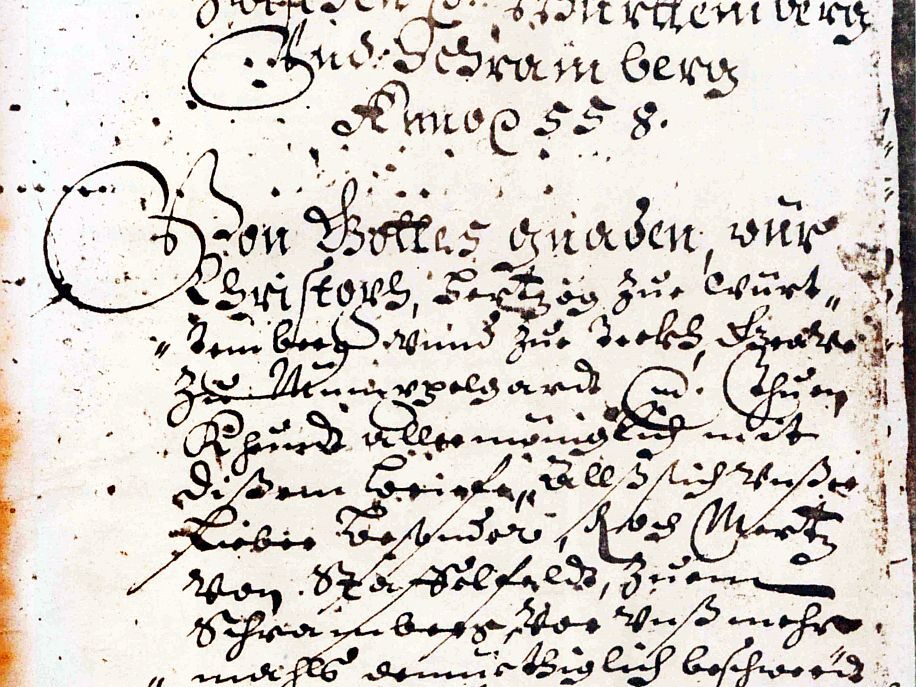 Württemberg
Und Schramberg
Anno 1558.
Von Gottes gnaden, wür
Christoph, Hertzog zue Würt„
„temberg vnnd zue Teckh, Grave
zu Mümppelgardt etc. Thuen
Khundt allermöniglich mit
dißem brieffe, Allß sich vnßer
Lieber besonder, Roch Mertz
von Staffelfeldt, zuem
Schramberg, vor vnß mehr
„mahls demüettiglich beschwerdt